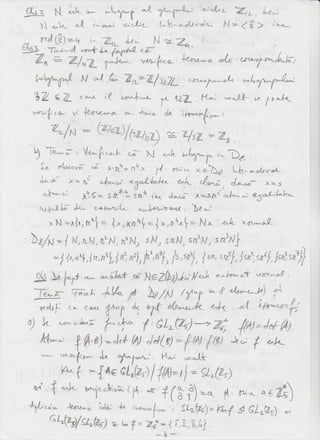 Obs 2 N este un subgrup al grupului ciclic Z₁₂, deci
N este el însuși ciclic. Într-adevăr N = <3̂> iar
ord(3̂) = 4 în Z₁₂ deci N ≅ Z₄.
Obs 3 Ținând cont de faptul că
Zₙ = Z/nZ putem verifica teorema de corespondență:
subgrupul N al lui Z₁₂ = Z/12Z corespunde subgrupului
3Z ≤ Z care îl conține pe 12Z. Mai mult se poate
verifica și teorema a treia de izomorfism:
Z₁₂/N = (Z/12Z)/(3Z/12Z) ≅ Z/3Z = Z₃.
Temă: Verificați că N este subgrup în D₈.
Se observă că x·r⁴ = r⁴x pt. orice x ∈ D₈. Într-adevăr
dacă x = rⁱ atunci egalitatea este clară, dacă x = s
atunci r⁴s = sr⁻⁴ = sr⁴ iar dacă x = srⁱ atunci egalitatea
rezultă din cazurile anterioare. Deci
xN = x{1, r⁴} = {x, xr⁴} = {x, r⁴x} = Nx este normal.
D₈/N = {N, rN, r²N, r³N, sN, srN, sr²N, sr³N}
= {{1, r⁴}, {r, r⁵}, {r², r⁶}, {r³, r⁷}, {s, sr⁴}, {sr, sr⁵}, {sr², sr⁶}, {sr³, sr⁷}}
Obs De fapt am arătat că N ≤ Z(D₈) deci N este automat normal.
Temă Faceți tabla pt D₈/N (grup cu 8 elemente) și
vedeți cu care grup de opt elemente este el izomorf.
d) Se consideră funcția f: GL₂(Z₅) → Z₅*, f(A) = det(A)
Atunci f(A·B) = det(AB) = f(A)·f(B) deci f este
un morfism de grupuri. Mai mult
Ker f = {A ∈ GL₂(Z₅) | f(A) = 1} = SL₂(Z₅)
și f este surjectivă (pt. că f(a 0 / 0 1) = a pt. orice a ∈ Z₅*)
Aplicăm teorema întâi de izomorfism: SL₂(Z₅) = Ker f ⊴ GL₂(Z₅) și
GL₂(Z₅)/SL₂(Z₅) ≅ Im f = Z₅* = {1̂, 2̂, 3̂, 4̂}.
-4-